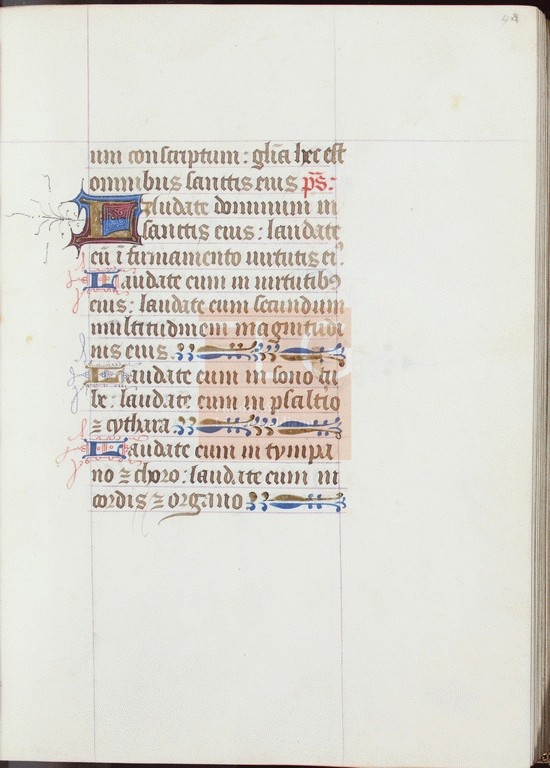 48
um conscriptum: gl̄ia hec est
omnibus sanctis eius p̄s:
Laudate dominum in
sanctis eius: laudate
eū ī firmamento uirtutis ei⁹
Laudate eum in uirtutib⁹
eius: laudate eum secundum
multitudinem magnitudi
nis eius.
Laudate eum in sono tu
be: laudate eum in psalt̄io
⁊ cythara.
Laudate eum in tympa
no ⁊ choro: laudate eum in
cordis ⁊ organo